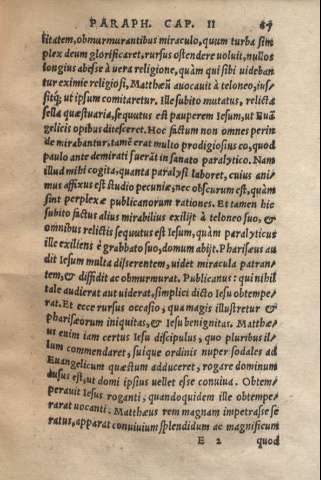 PARAPH. CAP. II 67
titatem, obmurmurantibus miraculo, quum turba sim
plex deum glorificaret, rursus ostendere uoluit, nullos
longius abesse à uera religione, quàm qui sibi uideban
tur eximie religiosi, Matthæũ auocauit à teloneo, ius=
sitq; ut ipsum comitaretur. Ille subito mutatus, relicta
sella quæstuaria, sequutus est pauperem Iesum, ut Euã
gelicis opibus ditesceret. Hoc factum non omnes perin
de mirabantur, tamẽ erat multo prodigiosius eo, quod
paulo ante demirati fuerãt in sanato paralytico. Nam
illud mihi cogita, quanta paralysi laboret, cuius ani=
mus affixus est studio pecuniæ, nec obscurum est, quàm
sint perplexæ publicanorum rationes. Et tamen hic
subito factus alius mirabilius exilijt à teloneo suo, &
omnibus relictis sequutus est Iesum, quàm paralyticus
ille exiliens è grabbato suo, domum abijt. Pharisæus au
dit Iesum multa disserentem, uidet miracula patran=
tem, & diffidit ac obmurmurat. Publicanus: qui nihil
tale audierat aut uiderat, simplici dicto Iesu obtempe=
rat. Et ecce rursus occasio, qua magis illustretur &
pharisæorum iniquitas, & Iesu benignitas. Matthæ=
us enim iam certus Iesu discipulus, quo pluribus il=
lum commendaret, suique ordinis nuper sodales ad
Euangelicum quæstum adduceret, rogare dominum
ausus est, ut domi ipsius uellet esse conuiua. Obtem=
perauit Iesus roganti, quandoquidem ille obtempe=
rarat uocanti. Matthæus rem magnam impetrasse se
ratus, apparat conuiuium splendidum ac magnificum
E 2 quod